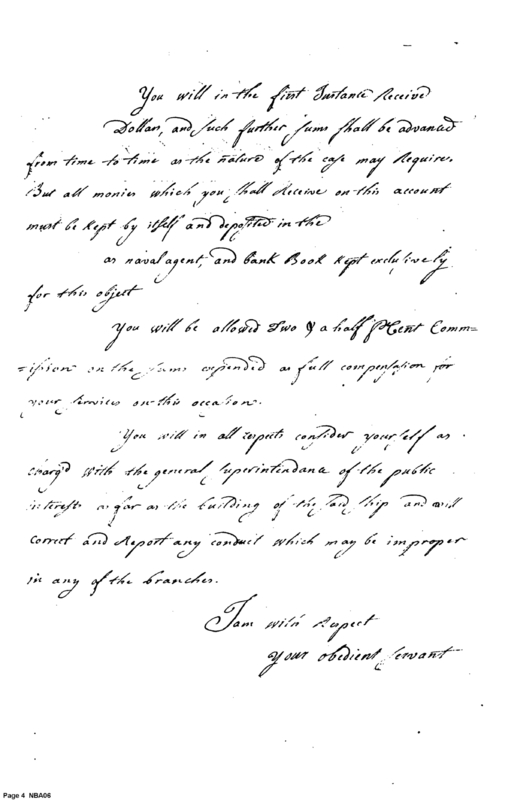 You will in the first Instance Receive
Dollars, and such further sums shall be advanced
from time to time as the nature of the case may Require.
But all monies which you shall Receive on this account
must be kept by itself and deposited in the
as naval agent, and bank Book kept exclusively
for this object
You will be allowed Two & a half PCent Comm=
=ission on the sums expended as full compensation for
your services on this occasion.
You will in all respects consider yourself as
charg'd with the general superintendance of the public
interests as far as the building of the said ship and will
correct and Report any conduct which may be improper
in any of the branches.
I am with Respect
your obedient servant
Page 4 NBA06